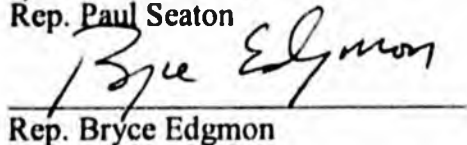 Rep. Paul Seaton
Bryce Edgmon
Rep. Bryce Edgmon